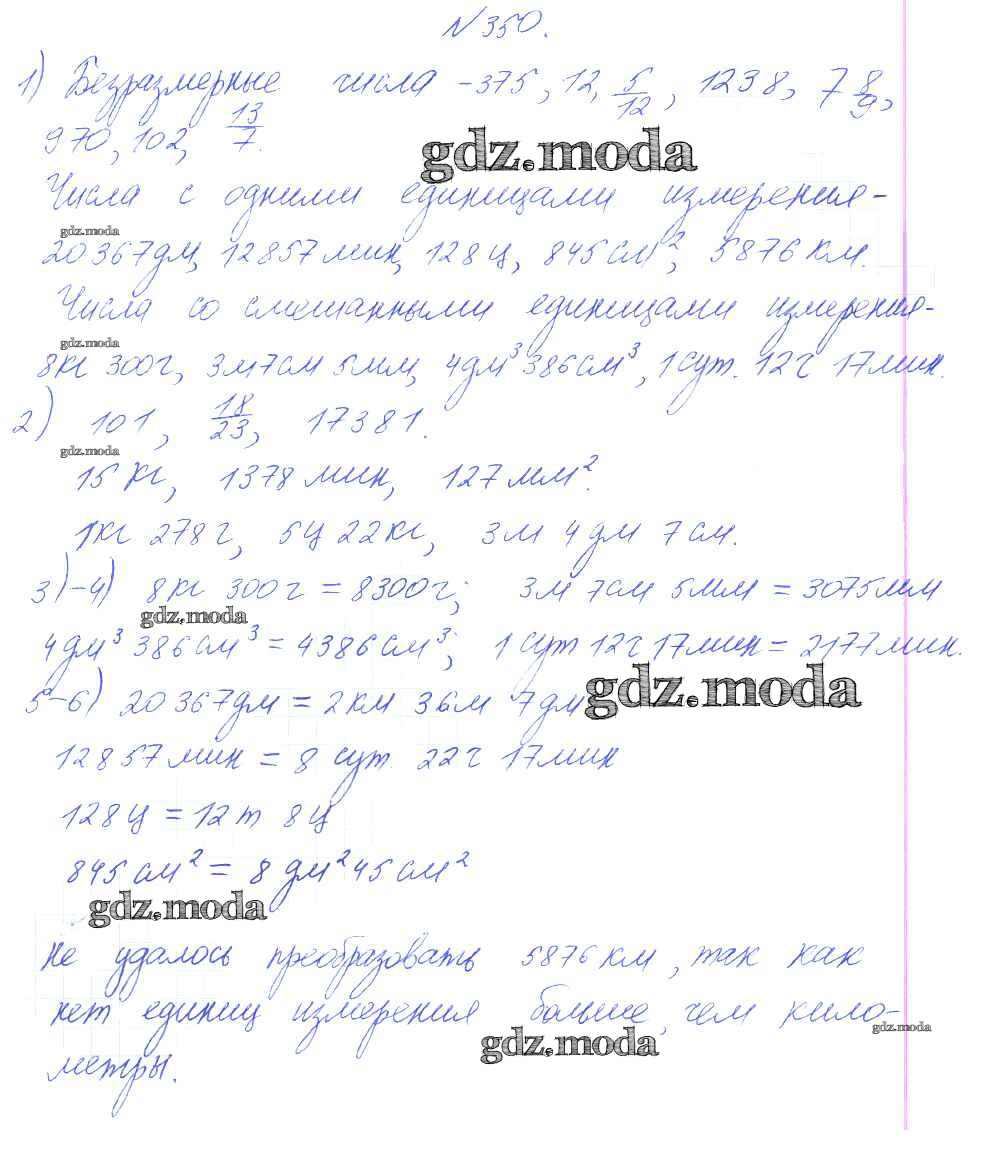 №350.
1) Безразмерные числа - 375, 12, 5/12, 1238, 7 8/9,
970, 102, 13/7.
gdz.moda
Числа с одними единицами измерения -
gdz.moda
20367дм, 12857мин, 128ц, 845см², 5876км.
Числа со смешанными единицами измерения-
gdz.moda
8кг 300г, 3м7см 5мм, 4дм³386см³, 1сут. 12ч 17мин.
2) 101, 18/23, 17381.
gdz.moda
15кг, 1378мин, 127мм².
1кг 278г, 5ц 22кг, 3м 4дм 7см.
3)-4) 8кг 300г = 8300г; 3м 7см 5мм = 3075мм
gdz.moda
4дм³ 386см³ = 4386см³; 1сут 12ч 17мин = 2177мин.
gdz.moda
5-6) 20367дм = 2км 36м 7дм
12857мин = 8 сут 22ч 17мин
128ц = 12т 8ц
845см² = 8 дм²45см²
gdz.moda
Не удалось преобразовать 5876км, так как
нет единиц измерения больше, чем кило-
gdz.moda
gdz.moda
метры.